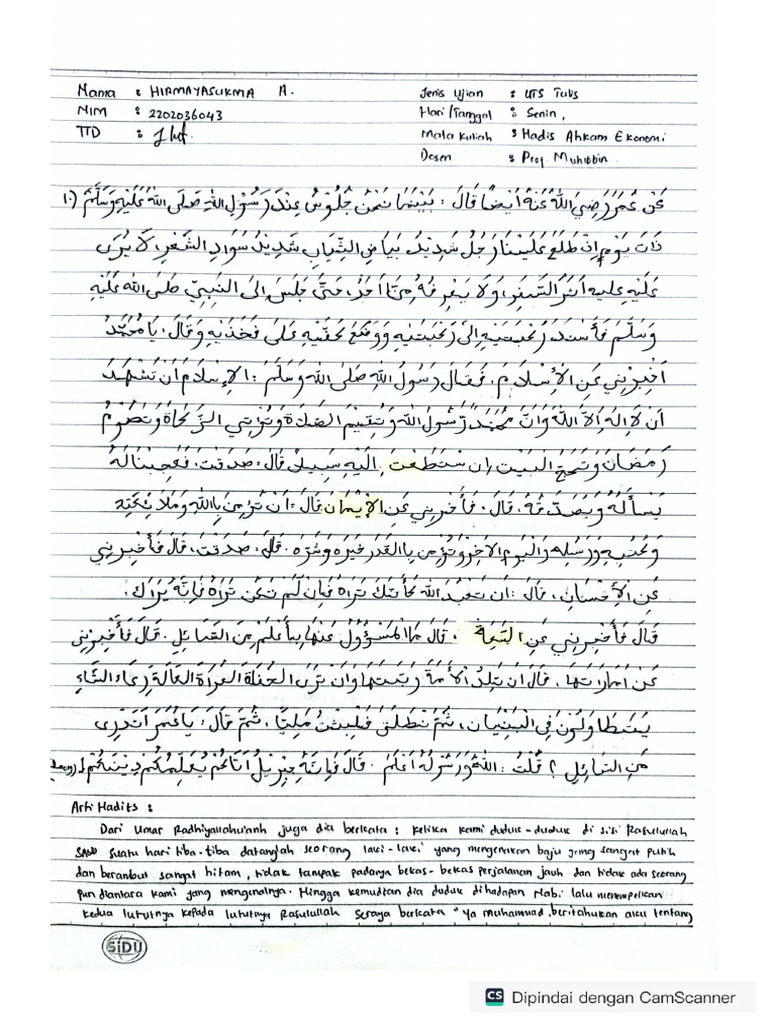 Nama : HIRMAYASUKMA A.
NIM : 2202036043
TTD :
Jenis Ujian : UTS Tulis
Hari/Tanggal : Senin,
Mata Kuliah : Hadis Ahkam Ekonomi
Dosen : Prof. Muhibbin
١٠) عَنْ عُمَرَ رَضِيَ اللهُ عَنْهُ أَيْضًا قَالَ : بَيْنَمَا نَحْنُ جُلُوْسٌ عِنْدَ رَسُوْلِ اللهِ صَلَى اللهُ عَلَيْهِ وَسَلَّمَ
ذَاتَ يَوْمٍ إِذْ طَلَعَ عَلَيْنَا رَجُلٌ شَدِيْدُ بَيَاضِ الثِّيَابِ شَدِيْدُ سَوَادِ الشَّعْرِ، لَا يُرَى
عَلَيْهِ عليه أَثَرُ السَّفَرِ، وَلَا يَعْرِفُهُ مِنَّا أَحَدٌ، حَتَّى جَلَسَ إِلَى النَّبِيِّ صَلَى الله عَلَيْهِ
وَسَلَّمَ فَأَسْنَدَ رُكْبَتَيْهِ إِلَى رُكْبَتَيْهِ وَوَضَعَ كَفَّيْهِ عَلَى فَخِذَيْهِ وَقَالَ: يَا مُحَمَّدُ
أَخْبِرْنِي عَنِ الْإِسْلَامِ، فَقَالَ رَسُوْلُ اللهِ صَلَى الله وَسَلَّمَ : الإِسْلَامُ أَنْ تَشْهَدَ
أَنْ لَا إِلَهَ إِلَّا اللهُ وَأَنَّ مُحَمَّدًا رَّسُوْلُ اللهِ وَتُقِيْمَ الصَّلَاةَ وَتُؤْتِيَ الزَّكَاةَ وَتَصُوْمَ
رَمَضَانَ وَتَحُجَّ الْبَيْتَ إِنِ سْتَطَعْتَ إِلَيْهِ سَبِيْلًا قَالَ: صَدَقْتَ، فَعَجِبْنَا لَهُ
يَسْأَلُهُ وَيُصَدِّقُهُ، قَالَ: فَأَخْبِرْنِي عَنِ الْإِيْمَانِ قَالَ: أَنْ تُؤْمِنَ بِاللهِ وَمَلَائِكَتِهِ
وَكُتُبِهِ وَرُسُلِهِ وَالْيَوْمِ الْآخِرِ وَتُؤْمِنَ بِالْقَدَرِ خَيْرِهِ وَشَرِّهِ. قَالَ: صَدَقْتَ، قَالَ فَأَخْبِرْنِي
عَنِ الْإِحْسَانِ، قَالَ : أَنْ تَعْبُدَ اللهَ كَأَنَّكَ تَرَاهُ فَإِنْ لَّمْ تَكُنْ تَرَاهُ فَإِنَّهُ يَرَاكَ.
قَالَ فَأَخْبِرْنِي عَنِ السَّاعَةِ، قَالَ مَا الْمَسْؤُوْلُ عَنْهَا بِأَعْلَمَ مِنَ السَّائِلِ. قَالَ فَأَخْبِرْنِي
عَنْ أَمَارَاتِهَا، قَالَ أَنْ تَلِدَ الْأَمَةُ رَبَّتَهَا وَأَنْ تَرَى الْحُفَاةَ الْعُرَاةَ الْعَالَةَ رِعَاءَ الشَّاءِ
يَتَطَاوَلُوْنَ فِي الْبُنْيَانِ، ثُمَّ نْطَلَقَ فَلَبِثْتُ مَلِيًّا، ثُمَّ قَالَ: يَا عُمَرَ أَتَدْرِى
مَنِ السَّائِلِ ؟ قُلْتُ : اللهُ وَرَسُوْلُهُ أَعْلَمُ. قَالَ فَإِنَّهُ جِبْرِيْلُ أَتَاكُمْ يُعَلِّمُكُمْ دِيْنَكُمْ
Arti Hadits :
Dari Umar Radhiyallahu'anh juga dia berkata : ketika kami duduk-duduk di sisi Rasulullah
SAW suatu hari tiba-tiba datanglah seorang laki-laki yang mengenakan baju yang sangat putih
dan berambut sangat hitam, tidak tampak padanya bekas-bekas perjalanan jauh dan tidak ada seorang
pun diantara kami yang mengenalnya. Hingga kemudian dia duduk dihadapan Nabi lalu menempelkan
kedua lututnya kepada lututnya Rasulullah seraya berkata "Ya Muhammad, beritahukan aku tentang
SiDU
CS Dipindai dengan CamScanner